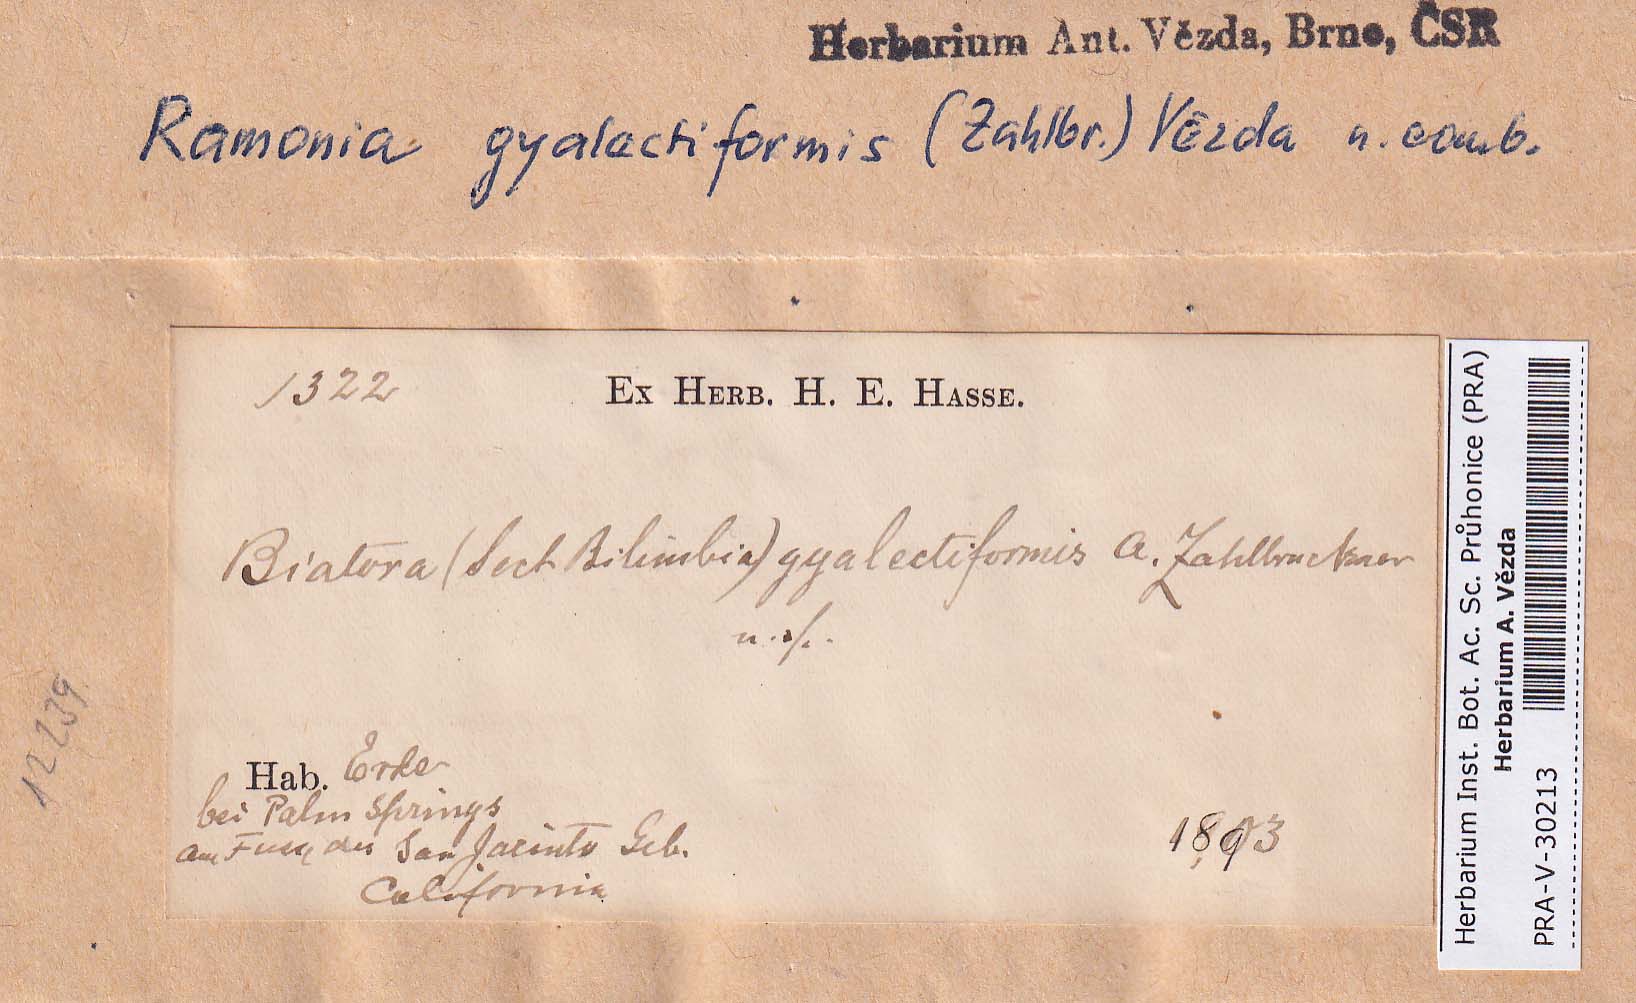 Herbarium Ant. Vězda, Brno, ČSR
Ramonia gyalectiformis (Zahlbr.) Vězda n. comb.
1322
Ex Herb. H. E. Hasse.
Biatora (Sect Bilimbia) gyalectiformis A. Zahlbruckner
n. sp.
Hab. Erde
bei Palm Springs
am Fuss des San Jacinto Geb.
California
1893
12239
Herbarium Inst. Bot. Ac. Sc. Průhonice (PRA)
Herbarium A. Vězda
PRA-V-30213